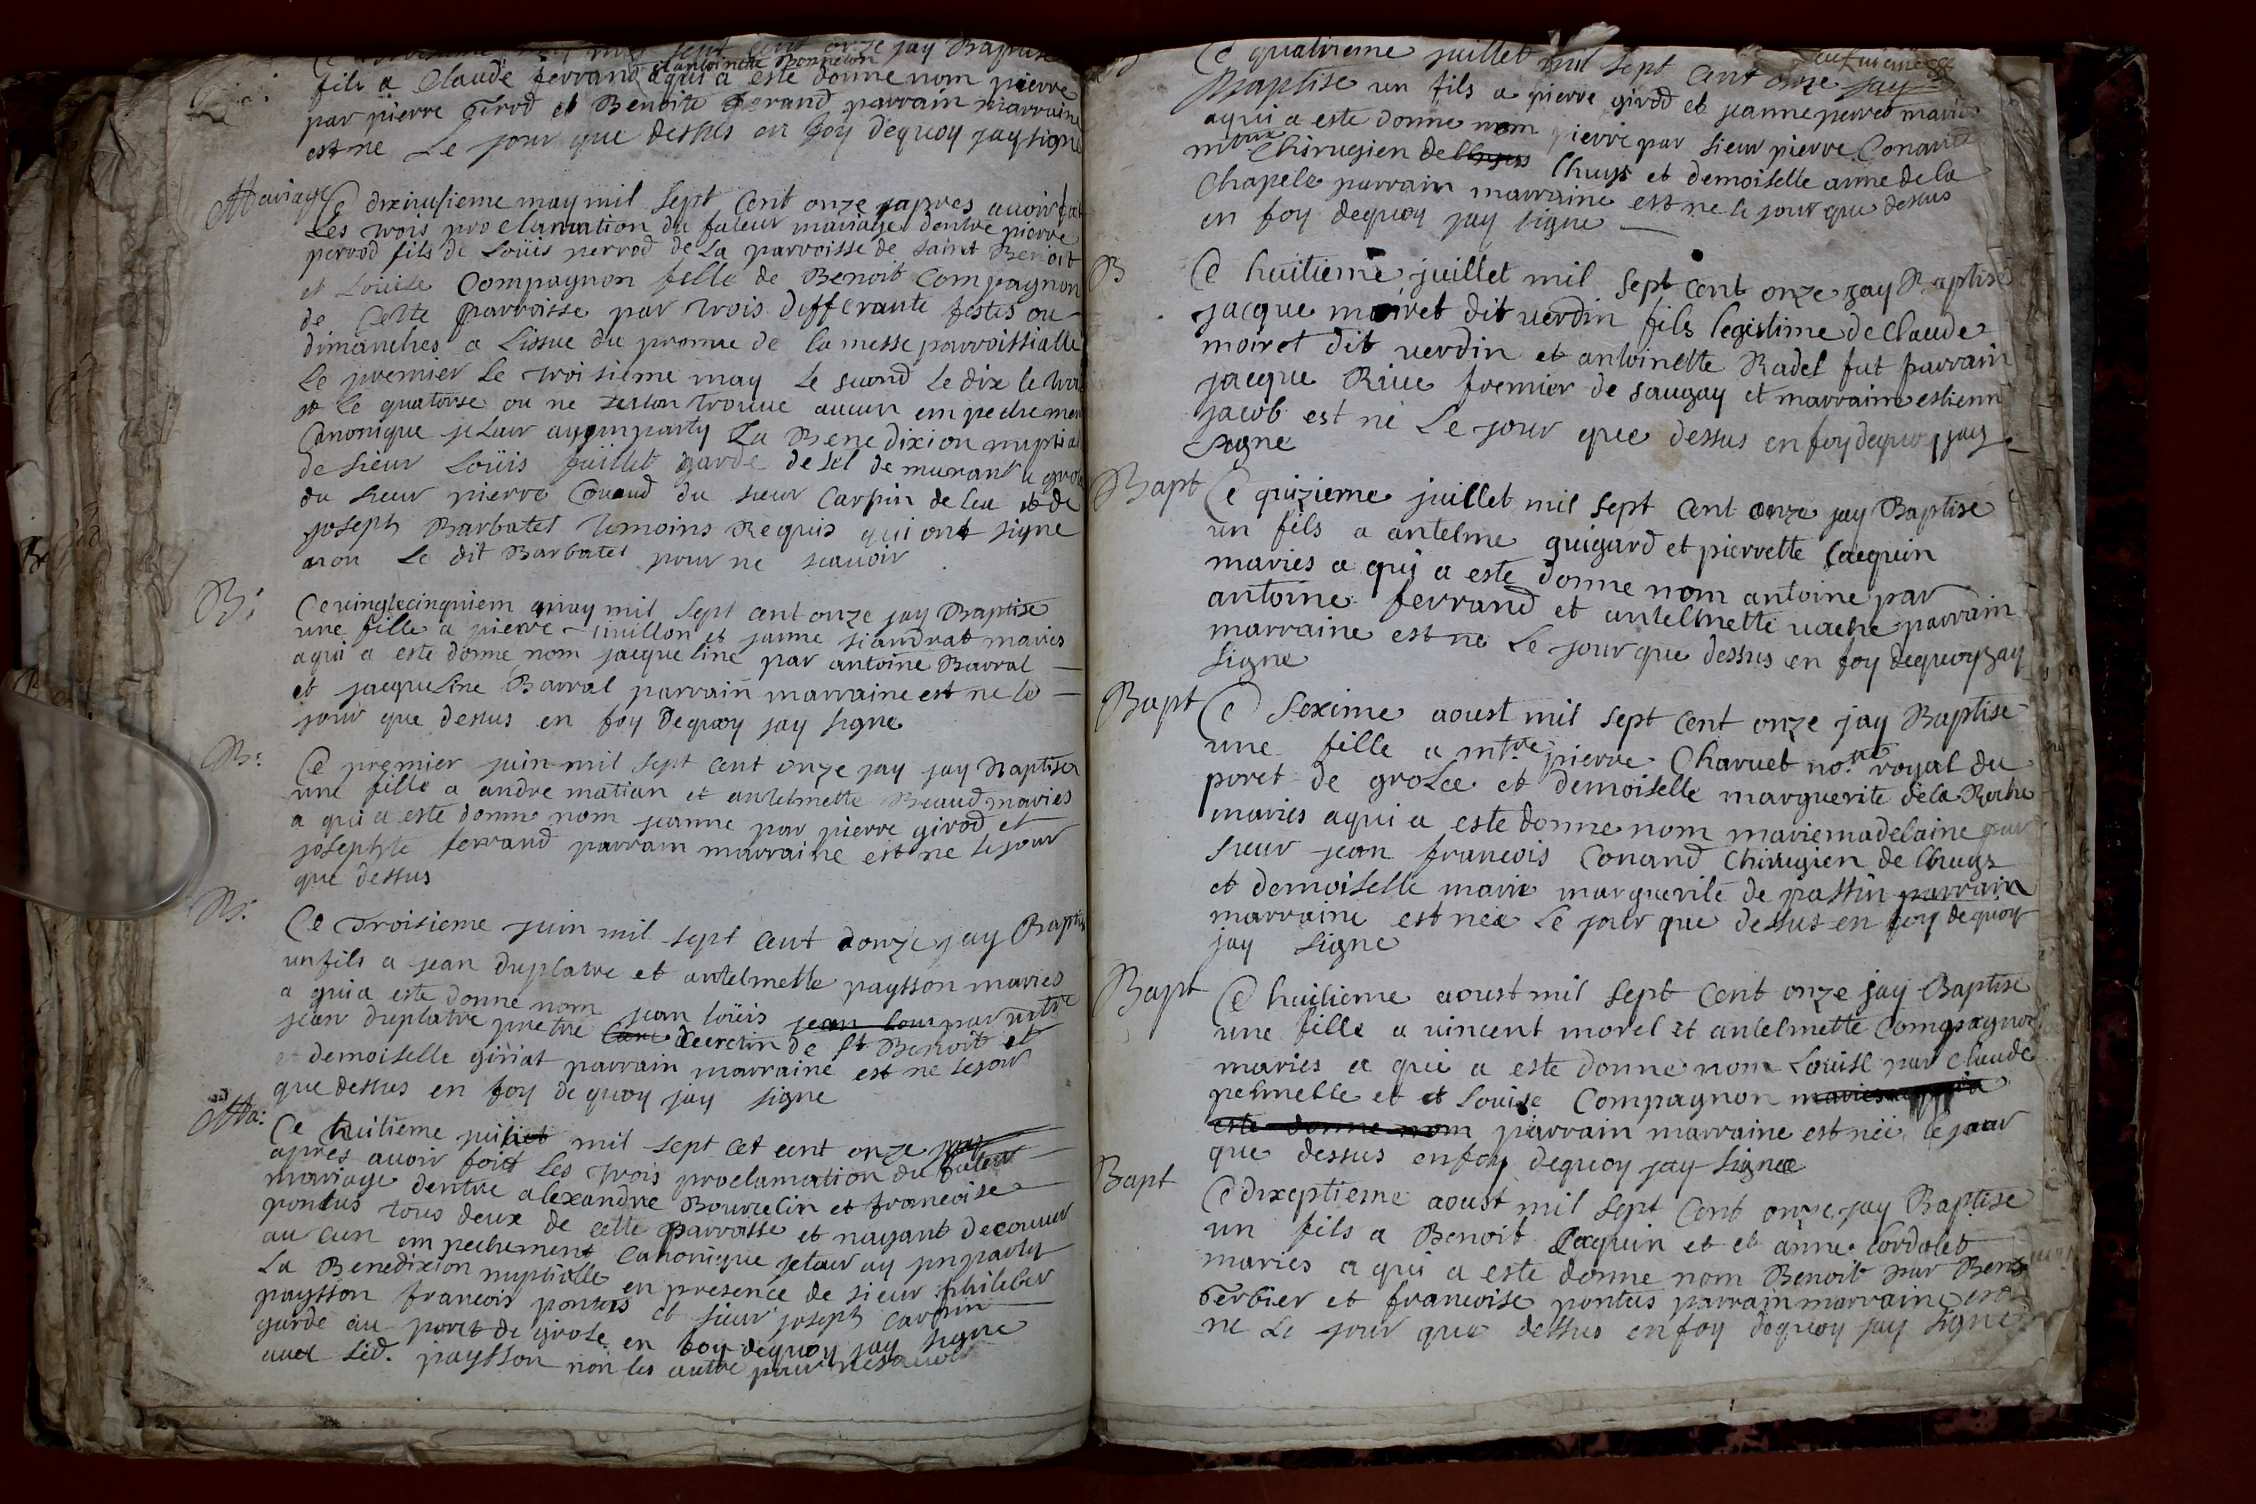 sept cent onze jay Baptise
et antoinette Bonneton
fils a Claude ferrand a qui a este donne nom pierre
par pierre Girod et Benoite ferrand parrain marraine
est ne Le jour que dessus en foy dequoy jay signe
Mariage Ce dixiusieme may mil sept cent onze japres auoir fait
Les trois proclamation du futeur mariage dentre pierre
perrod fils de Loüis perrod de La parroisse de saint Benoit
et Louise Compagnon fille de Benoit Compagnon
de Cette parroisse par trois differante festes ou
dimanches a Lissue du promue de la messe parroissialle
Le premier Le troisieme may Le segond Le dix le trois
et Le quatorse ou ne seston trouue aucun empechement
Canonique je Leur ay imparty La Benedixion nuptial
de sieur Loüis juillet garde de sel de murant a grole
du sieur pierre Conand du sieur Carpin de leu et de
joseph Barbatet temoins Requis qui ont signe
non Le dit Barbatet pour ne scauoir
B: Ce uingtecinquiem may mil sept cent onze jay Baptise
une fille a pierre uuillon et janne siandrat maries
a qui a este donne nom jacqueline par antoine Barral
et jacqueline Barral parrain marraine est ne le
jour que dessus en foy dequoy jay signe
B: Ce premier juin mil sept cent onze jay jay Baptise
une fille a andre matian et antelmette Beaud maries
a qui a este donne nom jeanne par pierre girod et
josephte ferrand parrain marraine est ne le jour
que dessus
B: Ce Troisieme juin mil sept cent donze jay Baptise
un fils a jean duplatre et antelmette paysson maries
a qui a este donne nom jean loüis jean loui par mtre
jean duplatre pretre Cure deuretin de St Benoit et
et demoiselle giriat parrain marraine est ne lejour
que dessus en foy de quoy jay signe
Ma: Ce huitieme juillet mil sept cet cent onze jay
apres auoir foit Les trois proclamation du futeur
mariage dentre alexandre Bourcelin et francoise
pontus tous deux de cette parroisse et nayant decouuer
au cun empechement canonique jeleur ay imparty
La Benedixion nuptialle en presence de sieur philiber
paysson francois pontus et sieur joseph Carpin
garde au poret de grole en foy dequoy jay signe
auec Led. paysson non les autre pour ne scauoir
Ce quatrieme juillet mil sept cent onze jay
Baptise un fils a pierre girod et jeanne perred maries
a qui a este donne nom pierre par sieur pierre Conand
mtre Chirugien de Lhuys Lhuys et demoiselle anne de la
Chapele parrain marraine est ne le jour que dessus
en foy dequoy jay signe
B Ce huitieme juillet mil sept cent onze jay Baptise
jacque moiret dit uerdin fils legistime de Claude
moiret dit uerdin et antoinette Radel fut parrain
jacque Riue fremier de saugay et marraine estienn
jacob est ne Le jour que dessus en foy dequoy jay
signe
Bapt Ce quizieme juillet mil sept cent onze jay Baptise
un fils a antelme guigard et pierrette Cacquin
maries a qui a este donne nom antoine par
antoine ferrand et antelmette uache parrain
marraine est ne Le jour que dessus en foy dequoy jay
signe
Bapt Ce sexime aoust mil sept cent onze jay Baptise
une fille a mtre pierre Charuet no.re royal du
poret de grolee et demoiselle marguerite dela Roche
maries a qui a este donne nom marie madelaine par
sieur jean francois Conand Chirugien de Lhuys
et demoiselle marie marguerite de passin parrain
marraine est nea Le jour que dessus en foy dequoy
jay signe
Bapt Ce huitieme aoust mil sept cent onze jay Baptise
une fille a uincent morel et antelmette Compagnon
maries a qui a este donne nom Louise par Claude
pelmelle et et Louise Compagnon maries a qui a
este donne nom parrain marraine est nee le jour
que dessus en foy dequoy jay signe
Bapt Ce dixeptieme aoust mil sept cent onze jay Baptise
un fils a Benoit Caquin et et anne Cordalet
maries a qui a este donne nom Benoit par Beno
Terbier et francoise pontus parrain marraine est
ne Le jour que dessus en foy dequoy jay signe